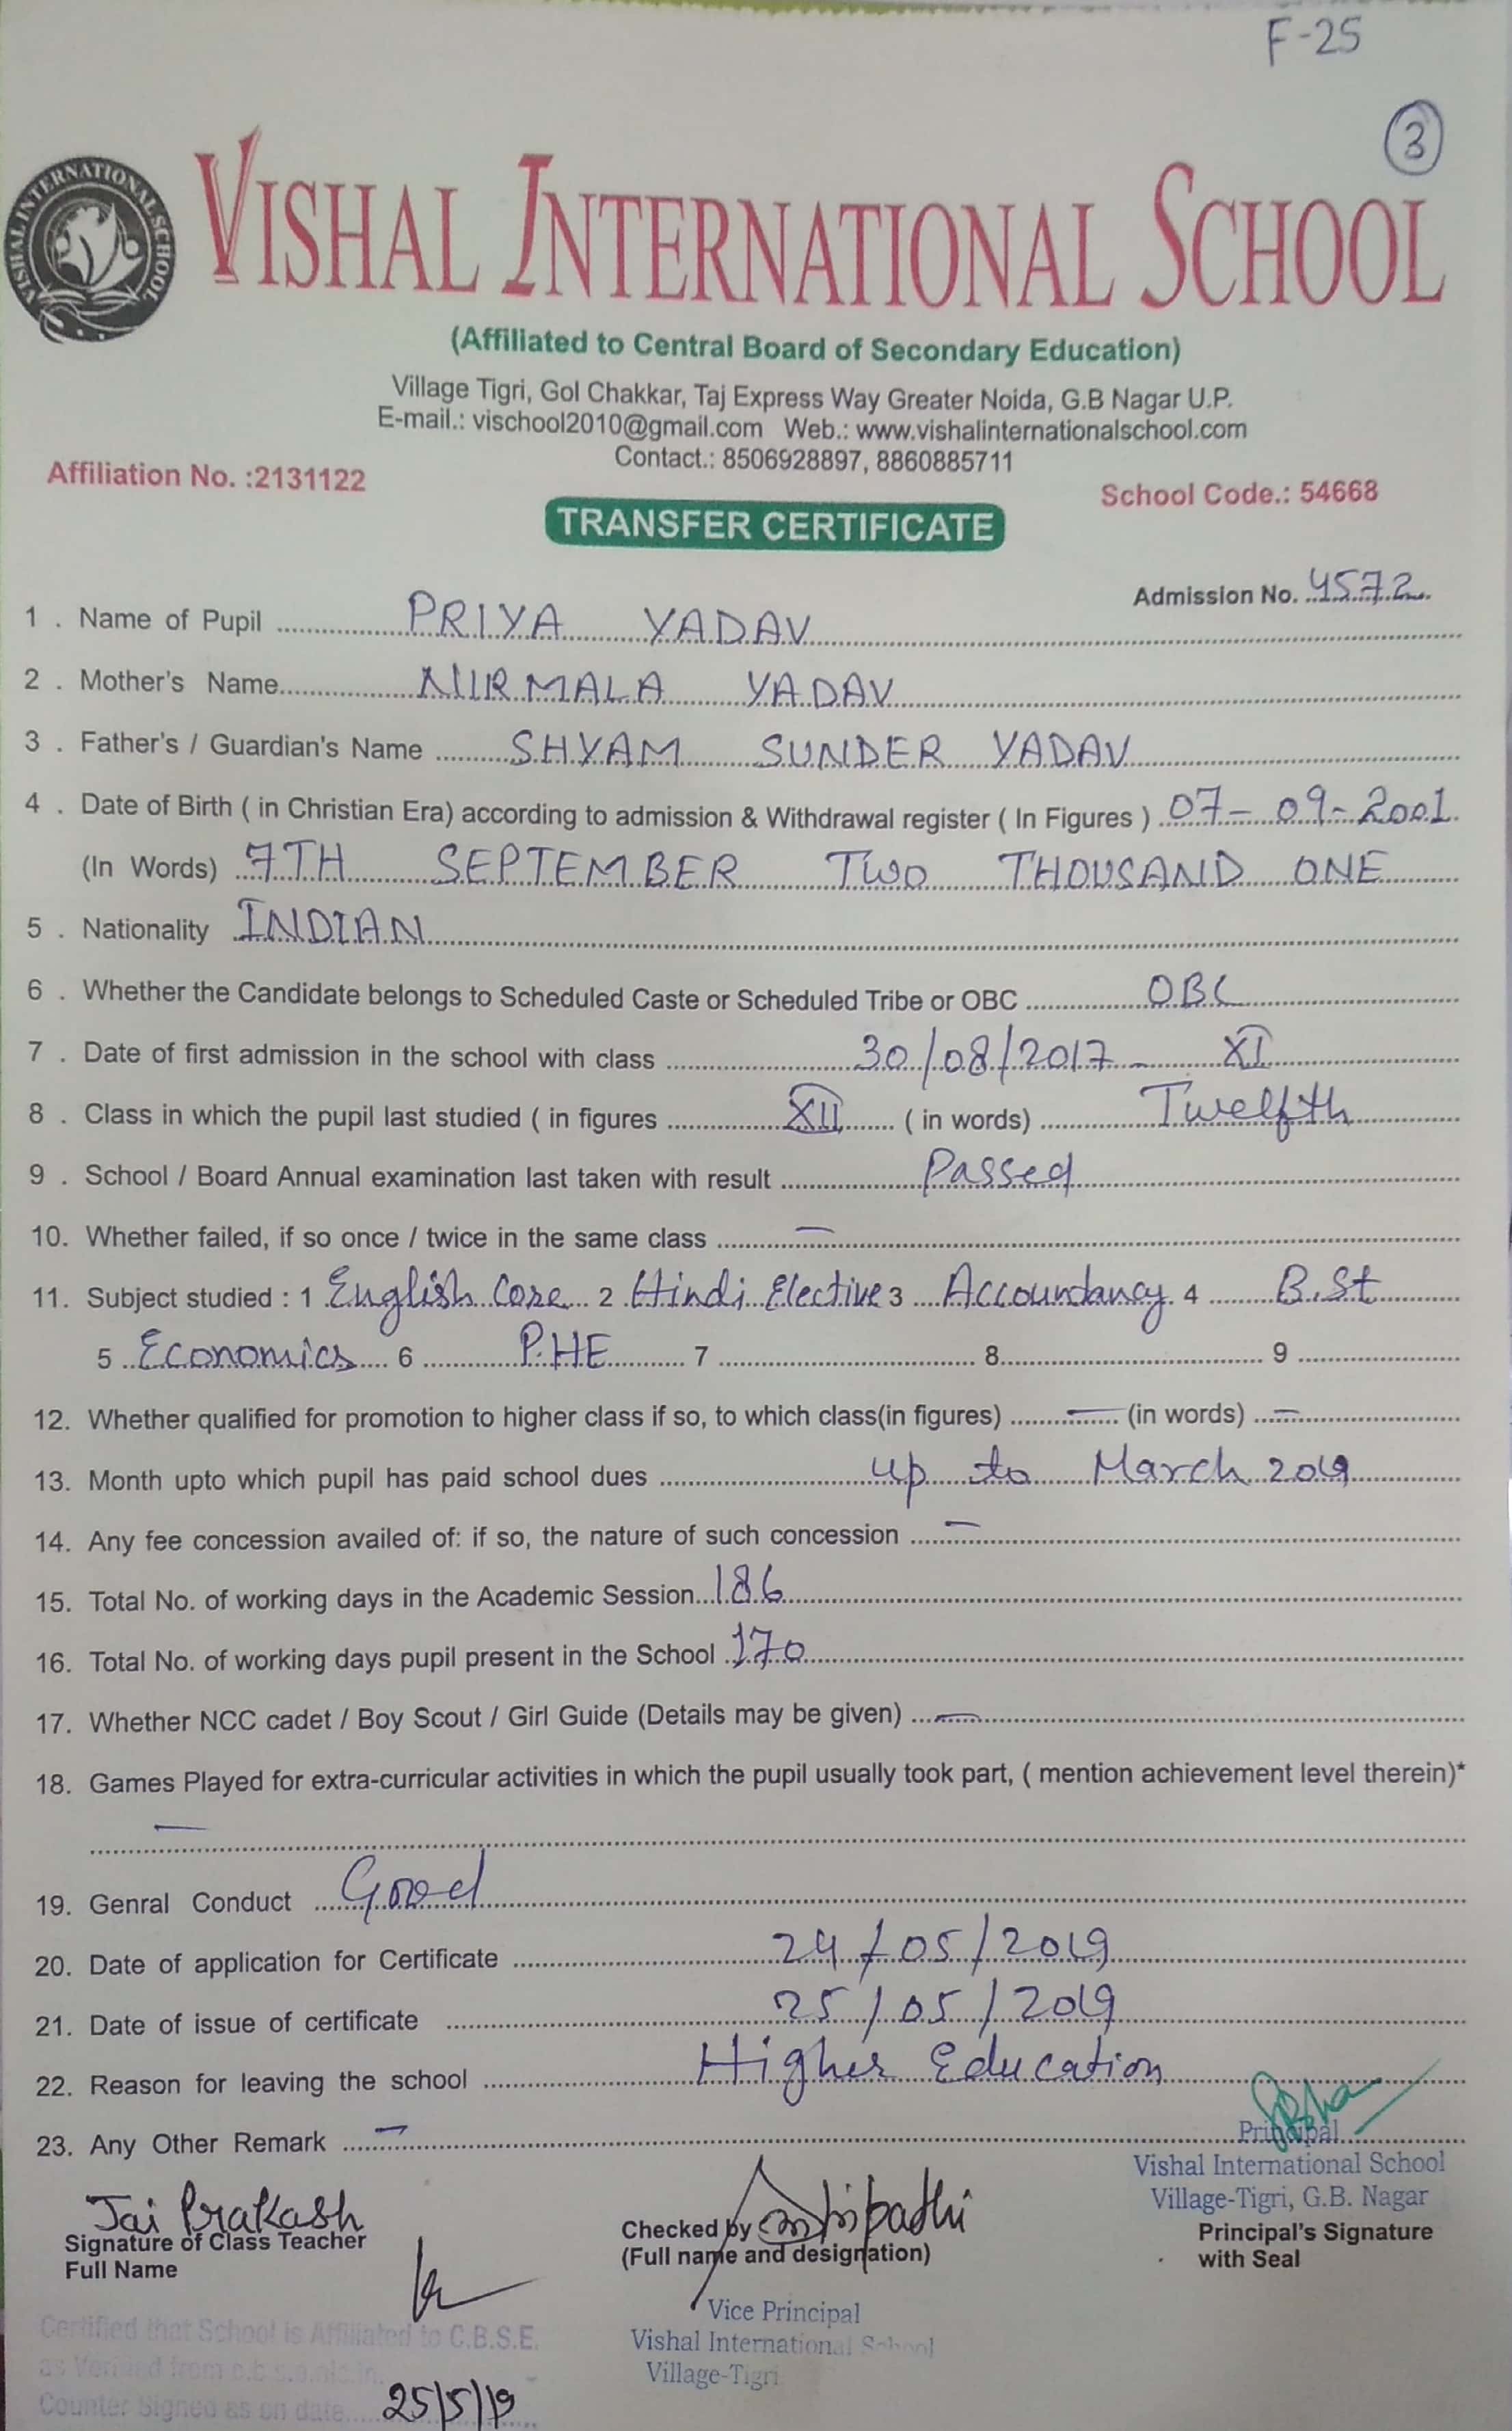 F-25
3
VISHAL INTERNATIONAL SCHOOL
VISHAL INTERNATIONAL SCHOOL
(Affiliated to Central Board of Secondary Education)
Village Tigri, Gol Chakkar, Taj Express Way Greater Noida, G.B Nagar U.P.
E-mail.: vischool2010@gmail.com Web.: www.vishalinternationalschool.com
Contact.: 8506928897, 8860885711
Affiliation No. :2131122
School Code.: 54668
TRANSFER CERTIFICATE
Admission No. 4572
1 . Name of Pupil PRIYA YADAV
2 . Mother's Name NIRMALA YADAV
3 . Father's / Guardian's Name SHYAM SUNDER YADAV
4 . Date of Birth ( in Christian Era) according to admission & Withdrawal register ( In Figures ) 07-09-2001
(In Words) 7TH SEPTEMBER TWO THOUSAND ONE
5 . Nationality INDIAN
6 . Whether the Candidate belongs to Scheduled Caste or Scheduled Tribe or OBC OBC
7 . Date of first admission in the school with class 30/08/2017 - XI
8 . Class in which the pupil last studied ( in figures XII ( in words) Twelfth
9 . School / Board Annual examination last taken with result Passed
10. Whether failed, if so once / twice in the same class —
11. Subject studied : 1 English Core 2 Hindi Elective 3 Accountancy 4 B.St
5 Economics 6 P.HE 7 8 9
12. Whether qualified for promotion to higher class if so, to which class(in figures) — (in words) —
13. Month upto which pupil has paid school dues up to March 2019
14. Any fee concession availed of: if so, the nature of such concession —
15. Total No. of working days in the Academic Session 186
16. Total No. of working days pupil present in the School 170
17. Whether NCC cadet / Boy Scout / Girl Guide (Details may be given) —
18. Games Played for extra-curricular activities in which the pupil usually took part, ( mention achievement level therein)*
—
19. Genral Conduct Good
20. Date of application for Certificate 24/05/2019
21. Date of issue of certificate 25/05/2019
22. Reason for leaving the school Higher Education
23. Any Other Remark —
Principal
Vishal International School
Village-Tigri, G.B. Nagar
Principal's Signature
with Seal
Jai Prakash
Signature of Class Teacher
Full Name
Checked by
(Full name and designation)
Vice Principal
Vishal International School
Village-Tigri
Certified that School is Affiliated to C.B.S.E.
as Verified from c.b.s.e.nic.in
Counter Signed as on date 25/5/19